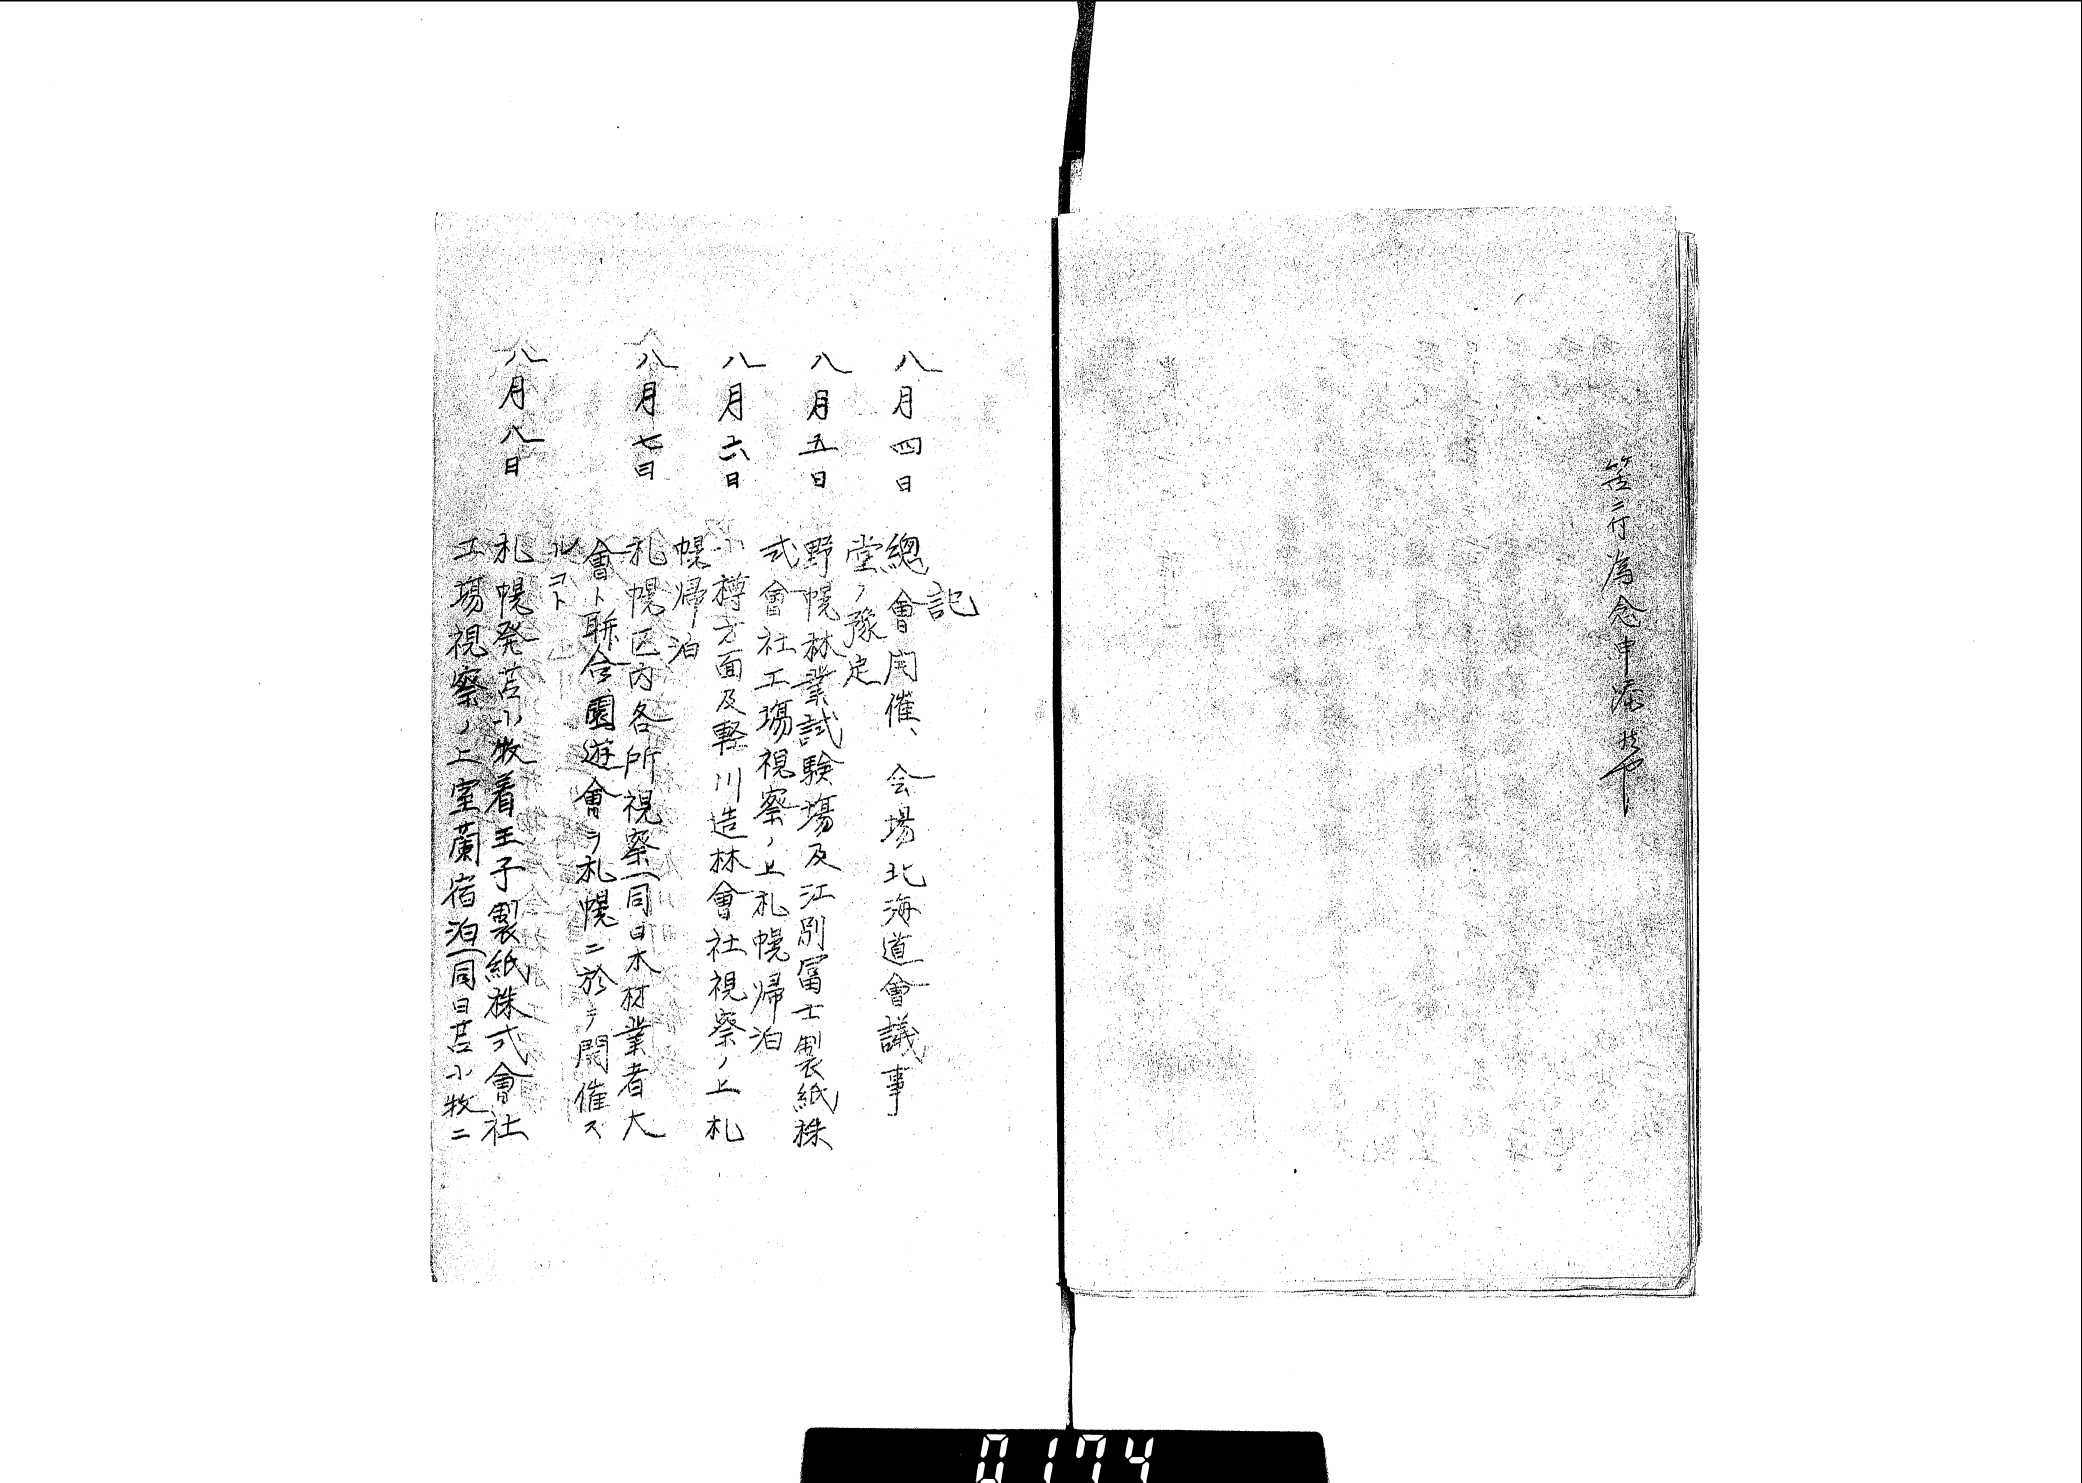 筈ニ付為念申添候也
記
八月四日 總會開催、会場北海道會議事
堂ノ豫定
八月五日 野幌林業試験場及江別冨士製紙株
式會社工場視察ノ上札幌帰泊
八月六日 小樽方面及軽川造林會社視察ノ上札
幌帰泊
八月七日 札幌区内各所視察(同日木材業者大
會ト聨合園遊會ヲ札幌ニ於テ開催ス
ルコト
八月八日 札幌発苫小牧着王子製紙株式會社
工場視察ノ上室蘭宿泊(同日苫小牧ニ
0174